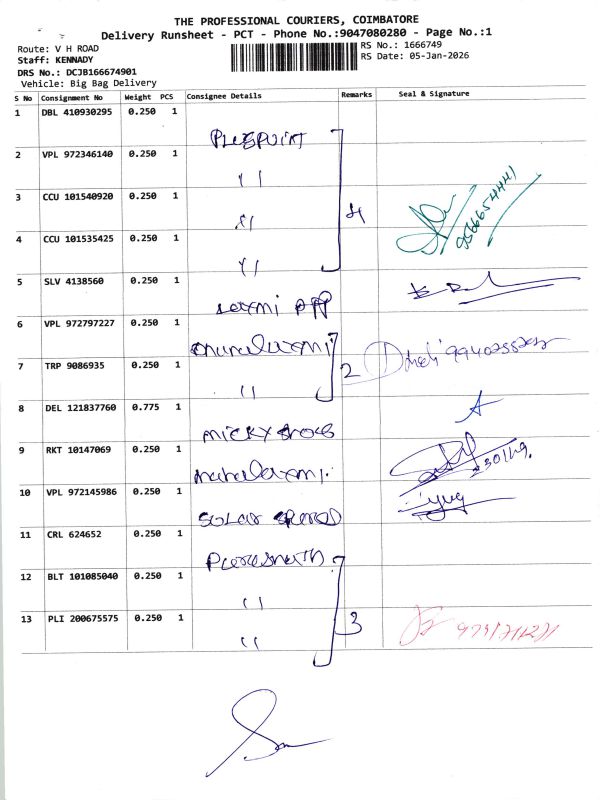 THE PROFESSIONAL COURIERS, COIMBATORE
Delivery Runsheet - PCT - Phone No.:9047080280 - Page No.:1
Route: V H ROAD
Staff: KENNADY
DRS No.: DCJB166674901
Vehicle: Big Bag Delivery
RS No.: 1666749
RS Date: 05-Jan-2026
S No Consignment No Weight PCS Consignee Details Remarks Seal & Signature
1 DBL 410930295 0.250 1
2 VPL 972346140 0.250 1 "
3 CCU 101540920 0.250 1 " 4 9566654441
4 CCU 101535425 0.250 1 "
5 SLV 4138560 0.250 1
6 VPL 972797227 0.250 1 mahalaxmi
7 TRP 9086935 0.250 1 " 2
8 DEL 121837760 0.775 1 micky
9 RKT 10147069 0.250 1 mahalaxmi.
10 VPL 972145986 0.250 1 solar
11 CRL 624652 0.250 1
12 BLT 101085040 0.250 1 "
13 PLI 200675575 0.250 1 " 3